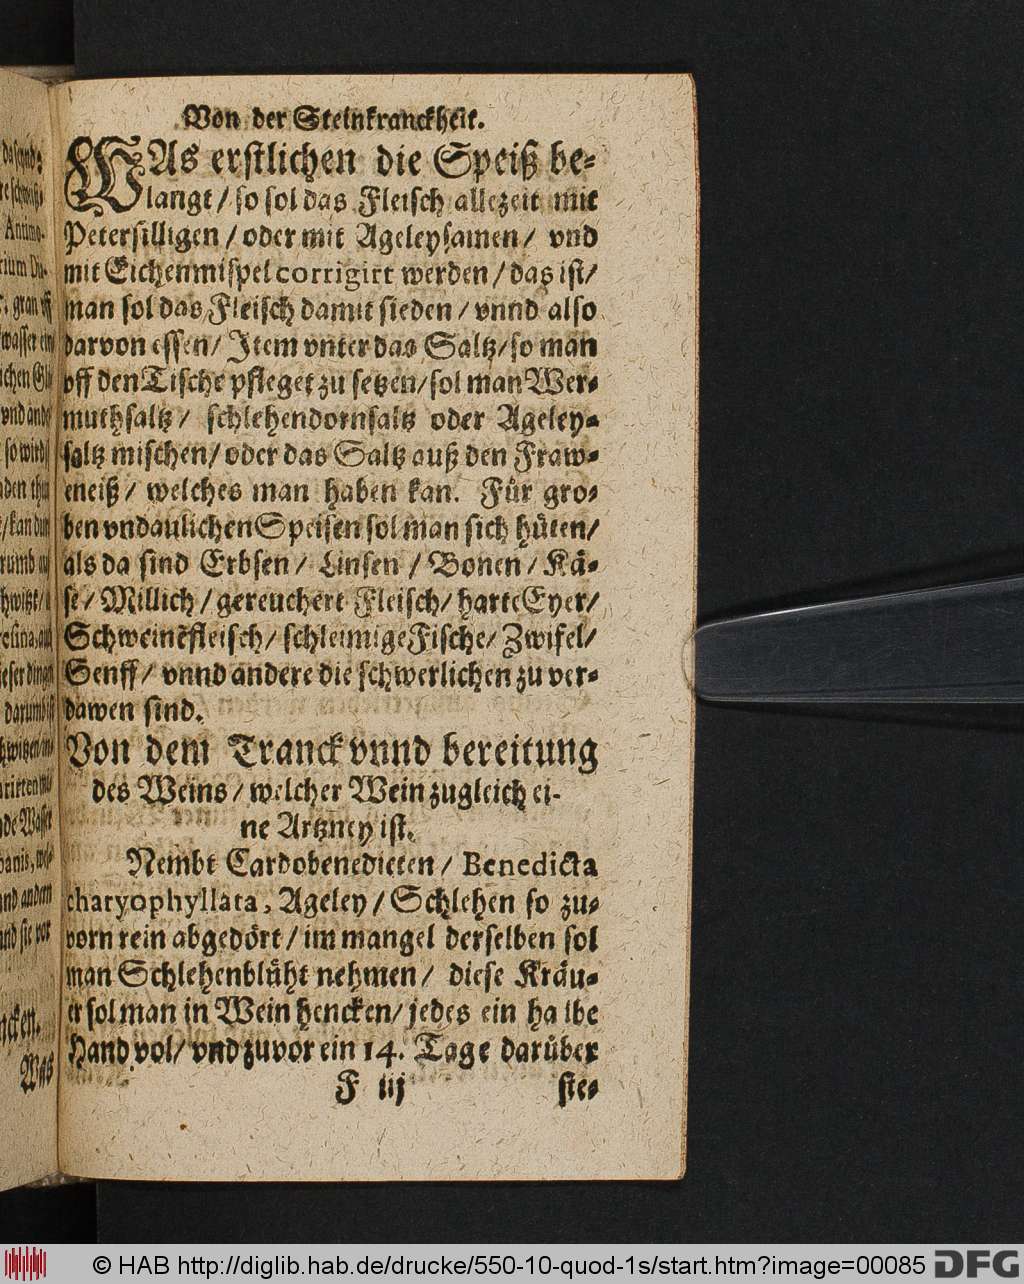 Von der Steinkranckheit.
WAs erstlichen die Speiß be-
langt / so sol das Fleisch allezeit mit
Petersilligen / oder mit Ageleysamen / vnd
mit Eichenmispel corrigirt werden / das ist /
man sol das Fleisch damit sieden / vnnd also
darvon essen / Item vnter das Saltz / so man
vff den Tische pfleget zu setzen / sol man Wer-
muthsaltz / schlehendornsaltz oder Ageley-
saltz mischen / oder das Saltz auß den Fraw-
eneiß / welches man haben kan. Für gro-
ben vndaulichen Speisen sol man sich hüten /
als da sind Erbsen / Linsen / Bonen / Kä-
se / Millich / gereuchert Fleisch / harte Eyer /
Schweinẽfleisch / schleimige Fische / Zwifel /
Senff / vnnd andere die schwerlichen zu ver-
dawen sind.
Von dem Tranck vnnd bereitung
des Weins / welcher Wein zugleich ei-
ne Artzney ist.
Nembt Cardobenedicten / Benedicta
charyophyllata, Ageley / Schlehen so zu-
vorn rein abgedört / im mangel derselben sol
man Schlehenblüht nehmen / diese Kräu-
er sol man in Wein hencken / jedes ein halbe
Hand vol / vnd zuvor ein 14. Tage darüber
F iij
ste-
© HAB http://diglib.hab.de/drucke/550-10-quod-1s/start.htm?image=00085
DFG